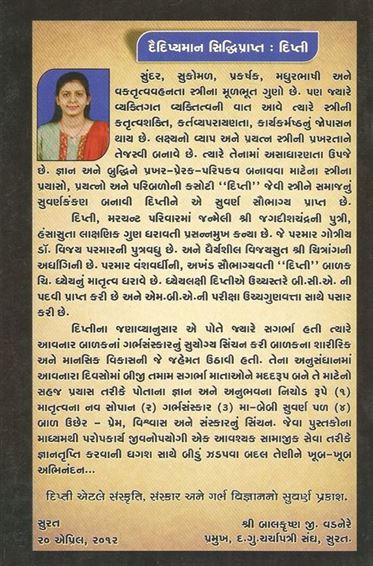 દૈદિપ્યમાન સિદ્ધિપ્રાપ્ત : દિપ્તી
સુંદર, સુકોમળ, પ્રકર્ષક, મધુરભાષી અને
વક્તૃત્વવહનતા સ્ત્રીના મૂળભૂત ગુણો છે. પણ જ્યારે
વ્યક્તિગત વ્યક્તિત્વની વાત આવે ત્યારે સ્ત્રીની
કતૃત્વશક્તિ, કર્તવ્યપરાયણતા, કાર્યકર્મષ્ઠનું જોપાસન
થાય છે. લક્ષ્યનો વ્યાપ અને પ્રયત્ન સ્ત્રીની પ્રખરતાને
તેજસ્વી બનાવે છે. ત્યારે તેનામાં અસાધારણતા ઉપજે
છે. જ્ઞાન અને બુદ્ધિને પ્રખર-પ્રેરક-પરિપકવ બનાવવા માટેના સ્ત્રીના
પ્રયાસો, પ્રયત્નો અને પરિબળોની કસોટી ‘‘દિપ્તી’’ જેવી સ્ત્રીને સમાજનું
સુવર્ણકંકણ બનાવી દિપ્તીને એ સુવર્ણ સૌભાગ્ય પ્રાપ્ત છે.
દિપ્તી, મરચન્ટ પરિવારમાં જન્મેલી શ્રી જગદીશચંદ્રની પુત્રી,
હંસાસુતા લાક્ષણિક ગુણ ધરાવતી પ્રસન્નમુખ કન્યા છે. જે પરમાર ગોત્રીય
ડૉ. વિજય પરમારની પુત્રવધુ છે. અને ધૈર્યશીલ વિજયસુત શ્રી ચિત્રાંગની
અર્ધાગિની છે. પરમાર વંશવર્ધીની, અખંડ સૌભાગ્યવતી ‘‘દિપ્તી’’ બાળક
ચિ. ધ્યેયનું માતૃત્વ ધરાવે છે. ધ્યેયલક્ષી દિપ્તીએ ઉચ્ચસ્તરે બી.સી.એ. ની
પદવી પ્રાપ્ત કરી છે અને એમ.બી.એ.ની પરીક્ષા ઉચ્ચગુણવત્તા સાથે પસાર
કરી છે.
દિપ્તીના જણાવ્યાનુસાર એ પોતે જ્યારે સગર્ભા હતી ત્યારે
આવનાર બાળકનાં ગર્ભસંસ્કારનું સુયોગ્ય સિંચન કરી બાળકના શારીરિક
અને માનસિક વિકાસની જે જહેમત ઉઠાવી હતી. તેના અનુસંધાનમાં
આવનારા દિવસોમાં બીજી તમામ સગર્ભા માતાઓને મદદરૂપ બને તે માટેનો
સહજ પ્રયાસ તરીકે પોતાના જ્ઞાન અને અનુભવના નિચોડ રૂપે (૧)
માતૃત્વના નવ સોપાન (૨) ગર્ભસંસ્કાર (૩) મા-બેબી સુવર્ણ પળ (૪)
બાળ ઉછેર – પ્રેમ, વિશ્વાસ અને સંસ્કારનું સિંચન. જેવા પુસ્તકોના
માધ્યમથી પરોપકાર્ય જીવનોપયોગી એક આવશ્યક સામાજીક સેવા તરીકે
જ્ઞાનતૃપ્તિ કરવાની ધગશ સાથે બીડું ઝડપવા બદલ તેણીને ખૂબ-ખૂબ
અભિનંદન...
દિપ્તી એટલે સંસ્કૃતિ, સંસ્કાર અને ગર્ભ વિજ્ઞાનનો સુવર્ણ પ્રકાશ.
સુરત
શ્રી બાલકૃષ્ણ જી. વડનેરે
૨૦ એપ્રિલ, ૨૦૧૨
પ્રમુખ, દ.ગુ.ચર્ચાપત્રી સંઘ, સુરત.